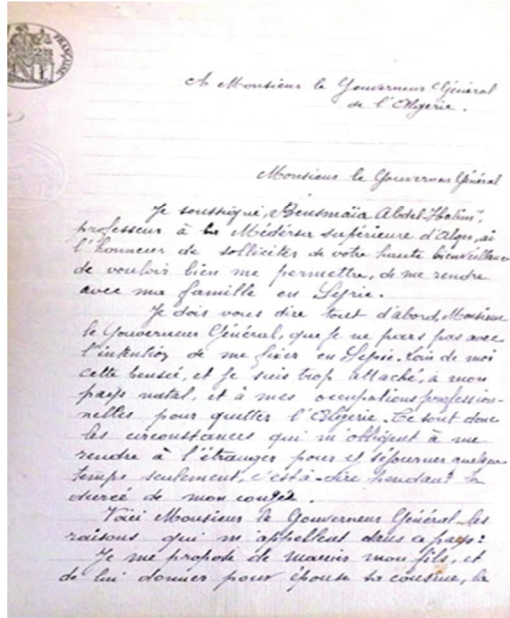 FRANÇAISE
A Monsieur le Gouverneur Général
de l'Algérie.
Monsieur le Gouverneur Général
Je soussigné, Bensmaïa Abdel-Halim,
professeur à la Médérsa supérieure d'Alger, ai
l'honneur de solliciter de votre haute bienveillance
de vouloir bien me permettre, de me rendre
avec ma famille en Syrie.
Je dois vous dire tout d'abord, Monsieur
le Gouverneur Général, que je ne pars pas avec
l'intention de me fixer en Syrie. Loin de moi
cette pensée, et je suis trop attaché, à mon
pays natal, et à mes occupations profession-
nelles pour quitter l'Algérie. Ce sont donc
les circonstances qui m'obligent à me
rendre à l'étranger pour y séjourner quelque
temps seulement, c'est-à-dire pendant la
durée de mon congé.
Voici Monsieur le Gouverneur Général les
raisons qui m'appellent dans ce pays:
Je me propose de marier mon fils, et
de lui donner pour épouse sa cousine, la